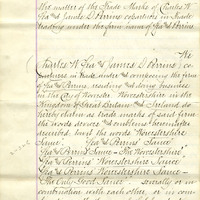 the matter of the Trade Marks of Charles W.
Lea and James D. Perrins copartners in trade
trading under the firm name of Lea & Perrins
We
Charles W. Lea and James D. Perrins co
partners in trade under and composing the firm
of Lea & Perrins residing and doing business
in the City of Worcester Worcestershire in the
Kingdom of Great Britain and Ireland do
hereby claim as trade marks of said firm
the words devices and emblems hereinafter
described, but the words "Worcestershire
Sauce" "Lea & Perrins' Sauce"
"Lea & Perrins' Sauce — The Worcestershire"
"Lea & Perrins' Worcestershire Sauce"
"Lea & Perrins' Worcestershire Sauce —
The Only Good Sauce" severally or in
combination with each other, or in com